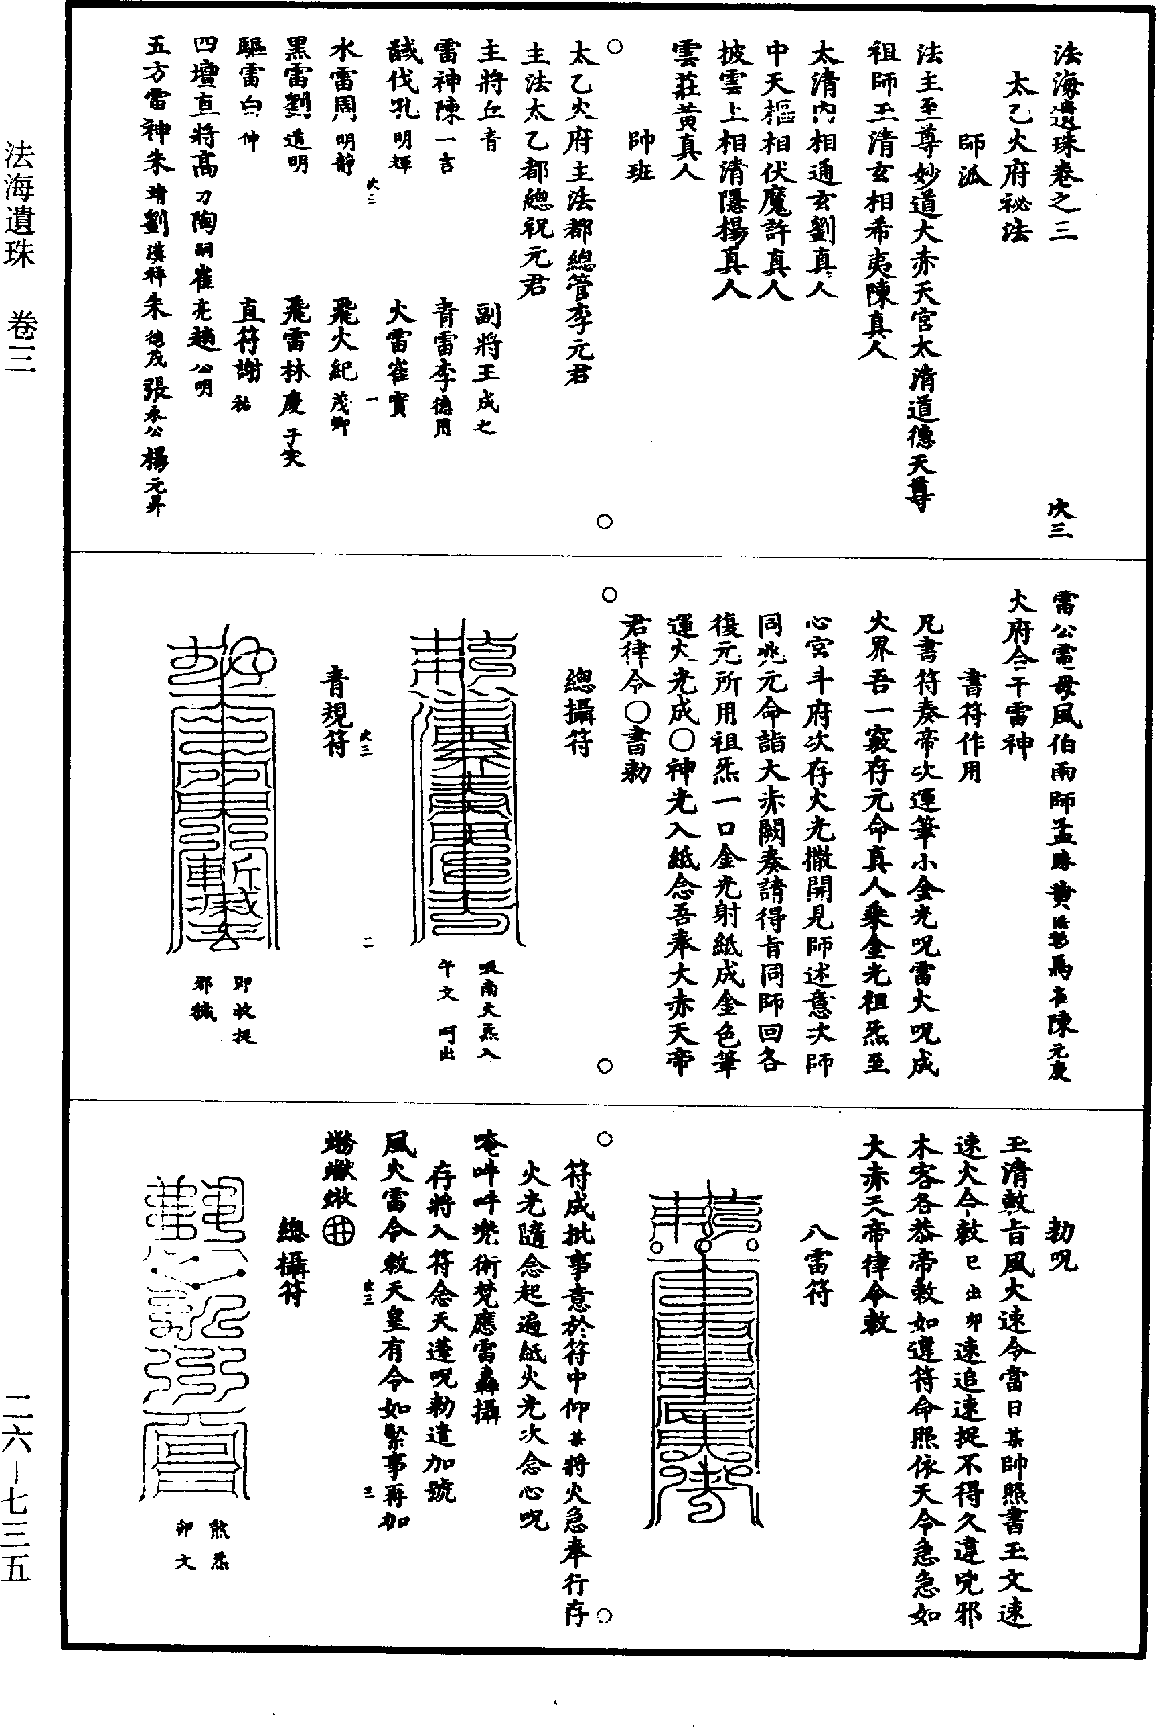 法海遺珠 卷三
二六—七三五
法海遺珠卷之三 次三
太乙火府祕法
師派
法主至尊妙道大赤天宮太清道德天尊
祖師玉清玄相希夷陳真人
太清內相通玄劉真人
中天樞相伏魔許真人
披雲上相清隱楊真人
雲莊黃真人
帥班
太乙火府主法都總管李元君
主法太乙都總祝元君
主將丘青 副將王成之
雷神陳一言 青雷李德用
馘伐孔明輝 火雷崔實
次三 一
水雷周明靜 飛火紀茂卿
黑雷劉道明 飛雷林慶子实
驅雷白仲 直符謝祐
四壇直將高刀陶嗣崔亮趙公明
五方雷神朱靖劉漢祥朱德茂張永公楊元昇
雷公電母風伯雨師孟 黃 馬 陳元慶
火府令三千雷神
書符作用
凡書符奏帝次運筆小金光呪雷火呪成
火界吾一竅存元命真人乘金光祖炁至
心宮斗府次存火光撒開見師述意次師
同兆元命詣大赤闕奏請得旨同師回各
復元所用祖炁一口金光射紙成金色筆
運火光成○神光入紙念吾奉大赤天帝
君律令○書勑
總攝符
吸南大炁入
午文 呵出
次三 二
青規符
即收捉
邪穢
勑呪
玉清敕旨風火速令當日某帥照書玉文速
速火令敕已出卯速追速捉不得久違兇邪
木客各恭帝敕如違符命照依天令急急如
大赤天帝律令敕
八雷符
符成批事意於符中仰某將火急奉行存
火光隨念起遍紙火光次念心呪
唵吽吽 術梵應雷轟攝
存將入符念天蓬呪勑遣加號
風火雷令敕天皇有令如緊事再加
次三 三
總攝符
煞炁
卯文